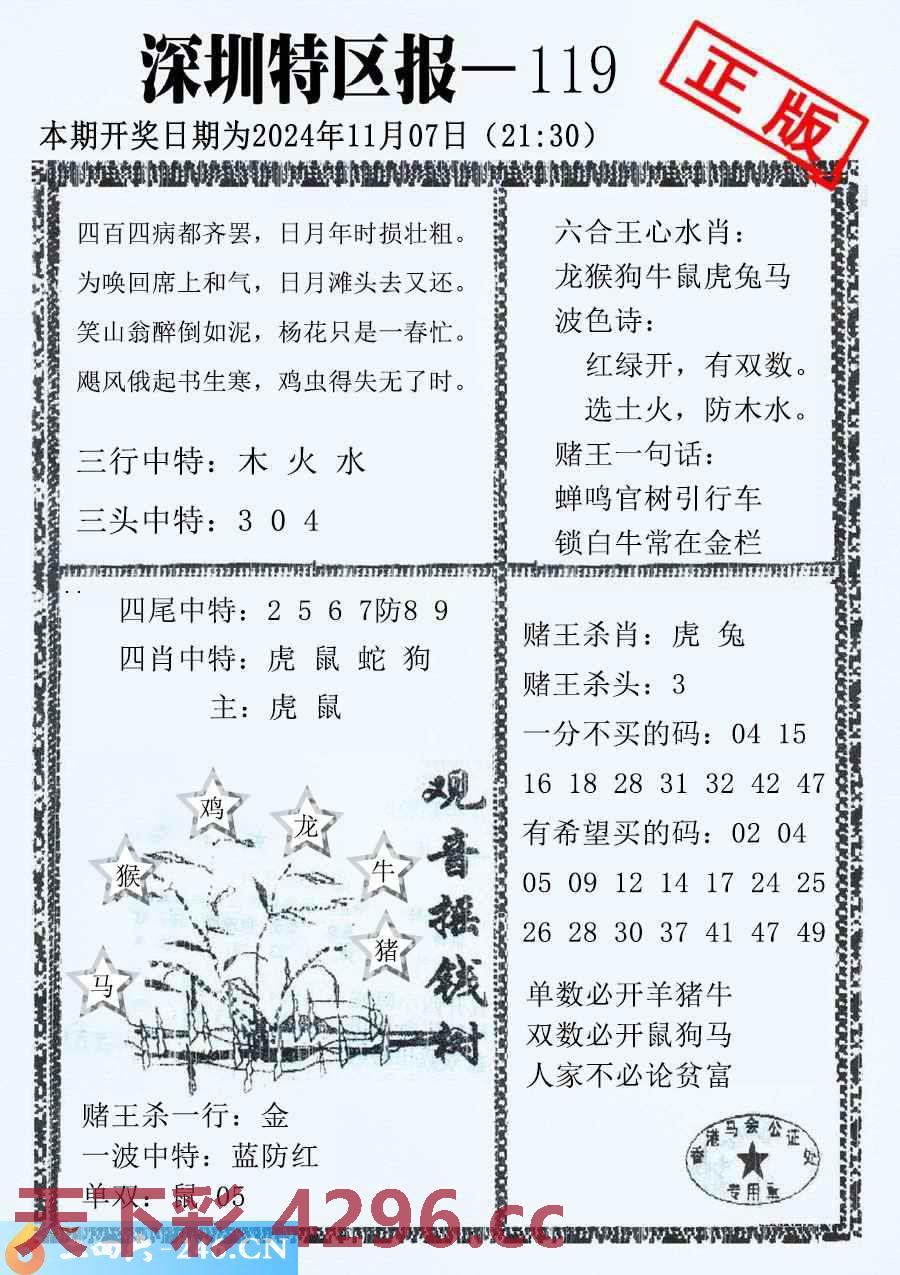 深圳特区报—119
正版
本期开奖日期为2024年11月07日（21:30）
四百四病都齐罢，日月年时损壮粗。
为唤回席上和气，日月滩头去又还。
笑山翁醉倒如泥，杨花只是一春忙。
飓风俄起书生寒，鸡虫得失无了时。
三行中特：木 火 水
三头中特：3 0 4
六合王心水肖：
龙猴狗牛鼠虎兔马
波色诗：
红绿开，有双数。
选土火，防木水。
赌王一句话：
蝉鸣官树引行车
锁白牛常在金栏
四尾中特：2 5 6 7防8 9
四肖中特：虎 鼠 蛇 狗
主：虎 鼠
鸡
龙
猴
牛
猪
马
观音摇钱树
赌王杀一行：金
一波中特：蓝防红
单双：鼠 05
赌王杀肖：虎 兔
赌王杀头：3
一分不买的码：04 15
16 18 28 31 32 42 47
有希望买的码：02 04
05 09 12 14 17 24 25
26 28 30 37 41 47 49
单数必开羊猪牛
双数必开鼠狗马
人家不必论贫富
香港马会公证处
专用章
天下彩 4296.cc
246.CN